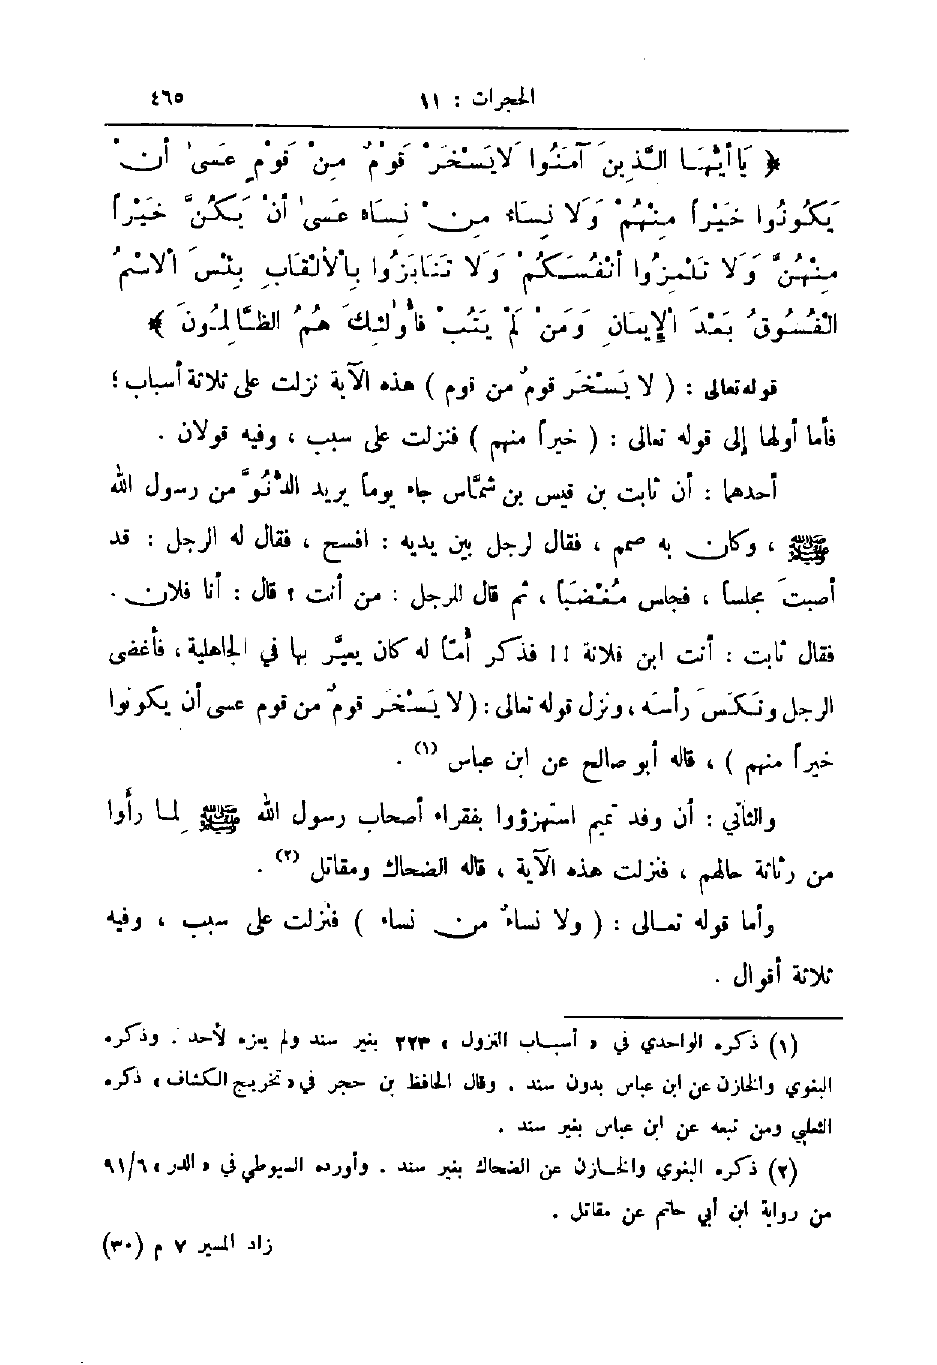 الحجرات : ١١ ٤٦٥
﴿ يَا أَيُّهَا الَّذِينَ آمَنُوا لَا يَسْخَرْ قَوْمٌ مِنْ قَوْمٍ عَسَىٰ أَنْ
يَكُونُوا خَيْراً مِنْهُمْ وَلَا نِسَاءٌ مِنْ نِسَاءٍ عَسَىٰ أَنْ يَكُنَّ خَيْراً
مِنْهُنَّ وَلَا تَلْمِزُوا أَنْفُسَكُمْ وَلَا تَنَابَزُوا بِالْأَلْقَابِ بِئْسَ الْاسْمُ
الْفُسُوقُ بَعْدَ الْإِيمَانِ وَمَنْ لَمْ يَتُبْ فَأُولٰئِكَ هُمُ الظَّالِمُونَ ﴾
قوله تعالى : ( لا يَسْخَر قومٌ من قوم ) هذه الآية نزلت على ثلاثة أسباب ؛
فأما أولها إلى قوله تعالى : ( خيراً منهم ) فنزلت على سبب ، وفيه قولان .
أحدهما : أن ثابت بن قيس بن شمَّاس جاء يوماً يريد الدُّنُوَّ من رسول الله
ﷺ ، وكان به صمم ، فقال لرجل بين يديه : افسح ، فقال له الرجل : قد
أصبتَ مجلساً ، فجلس مُغْضَباً ، ثم قال للرجل : من أنت ؟ قال : أنا فلان .
فقال ثابت : أنت ابن فلانة !! فذكر أُمّاً له كان يعيَّر بها في الجاهلية ، فأغضى
الرجل ونَكَسَ رأسَه ، ونزل قوله تعالى : ( لا يَسْخَر قومٌ من قوم عسى أن يكونوا
خيراً منهم ) ، قاله أبو صالح عن ابن عباس (١) .
والثاني : أن وفد تميم استهزؤوا بفقراء أصحاب رسول الله ﷺ لِما رأوا
من رثاثة حالهم ، فنزلت هذه الآية ، قاله الضحاك ومقاتل (٢) .
وأما قوله تعالى : ( ولا نساءٌ من نساء ) فنَزلت على سبب ، وفيه
ثلاثة أقوال .
(١) ذكره الواحدي في « أسباب النزول » ٢٢٣ بغير سند ولم يعزه لأحد . وذكره
البغوي والخازن عن ابن عباس بدون سند . وقال الحافظ بن حجر في « تخريج الكشاف » ذكره
الثعلبي ومن تبعه عن ابن عباس بغير سند .
(٢) ذكره البغوي والخازن عن الضحاك بغير سند . وأورده السيوطي في « الدر » ٩١/٦
من رواية ابن أبي حاتم عن مقاتل .
زاد المسير ٧ م (٣٠)